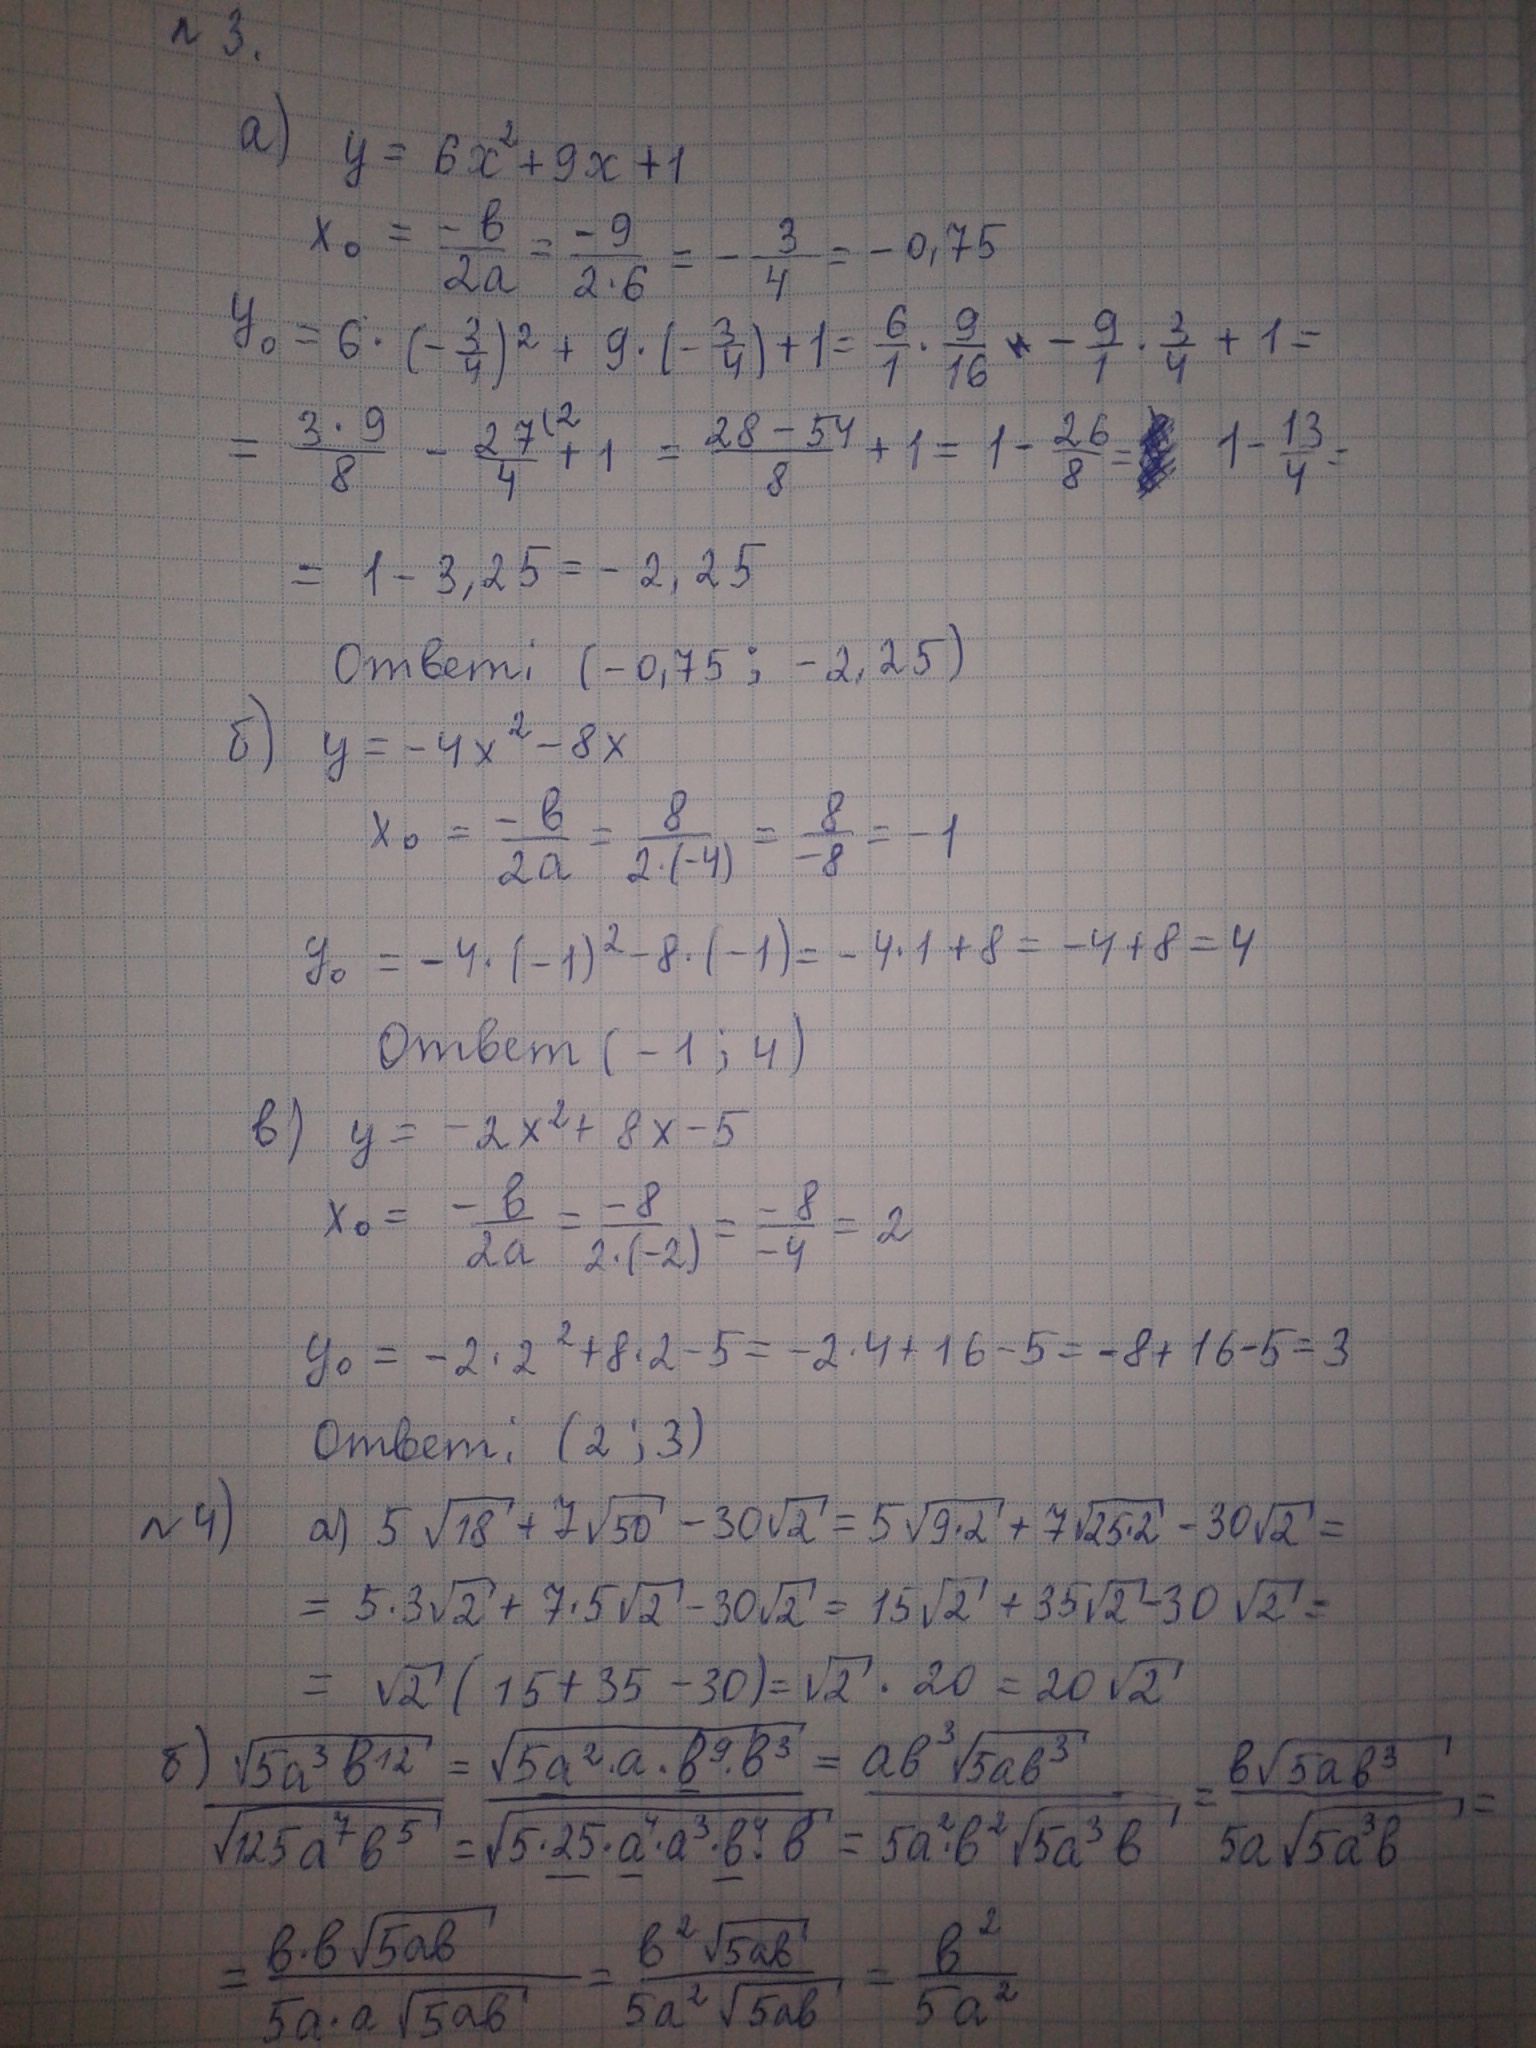 №3.
а) y = 6x²+9x+1
x₀ = -b/2a = -9/2·6 = -3/4 = -0,75
y₀ = 6·(-3/4)² + 9·(-3/4)+1 = 6/1 · 9/16 - 9/1 · 3/4 + 1 =
= 3·9/8 - 27⁽²/4 + 1 = 28-54/8 + 1 = 1 - 26/8 = 1 - 13/4 =
= 1 - 3,25 = -2,25
Ответ: (-0,75 ; -2,25)
б) y = -4x²-8x
x₀ = -b/2a = 8/2·(-4) = 8/-8 = -1
y₀ = -4·(-1)²-8·(-1) = -4·1+8 = -4+8 = 4
Ответ (-1 ; 4)
в) y = -2x²+8x-5
x₀ = -b/2a = -8/2·(-2) = -8/-4 = 2
y₀ = -2·2²+8·2-5 = -2·4+16-5 = -8+16-5 = 3
Ответ: (2 ; 3)
№4) а) 5√18 + 7√50 - 30√2 = 5√9·2 + 7√25·2 - 30√2 =
= 5·3√2 + 7·5√2 - 30√2 = 15√2 + 35√2 - 30√2 =
= √2 (15+35-30) = √2 · 20 = 20√2
б) √5a³b¹²/√125a⁷b⁵ = √5a²·a·b⁹·b³/√5·25·a⁴·a³·b⁴·b = ab³√5ab³/5a²·b²√5a³b = b√5ab³/5a√5a³b =
= b·b√5ab/5a·a√5ab = b²√5ab/5a²√5ab = b²/5a²